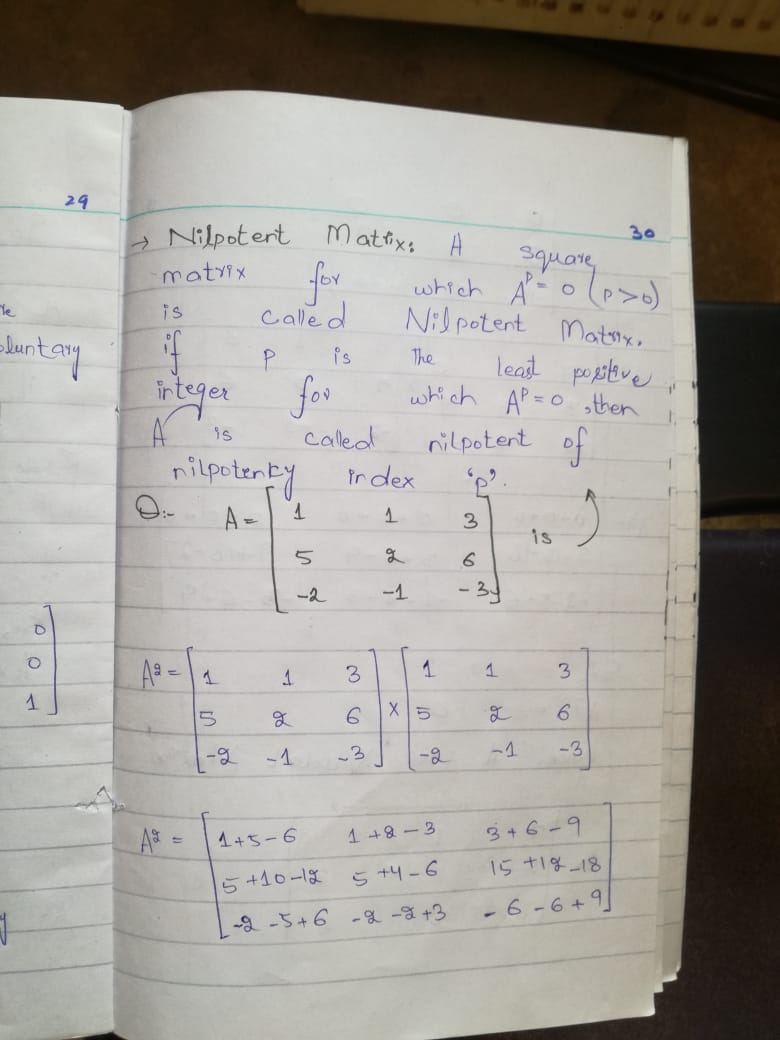 29
re
oluntary
0
0
1
30
→ Nilpotent Matrix: A square
matrix for which Aᵖ = 0 (p>0)
is called Nilpotent Matrix.
if p is the least positive
integer for which Aᵖ = 0, then
A is called nilpotent of
nilpotenky index 'p'.
Q:- A = [ 1 1 3
5 2 6 is
-2 -1 -3 ]
A² = [ 1 1 3 ] x [ 1 1 3 ]
5 2 6 5 2 6
-2 -1 -3 -2 -1 -3
A² = [ 1+5-6 1+2-3 3+6-9 ]
5+10-12 5+4-6 15+12-18
-2-5+6 -2-2+3 -6-6+9